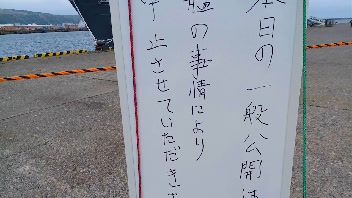 本日の一般公開は
の事情により
止させていただきま